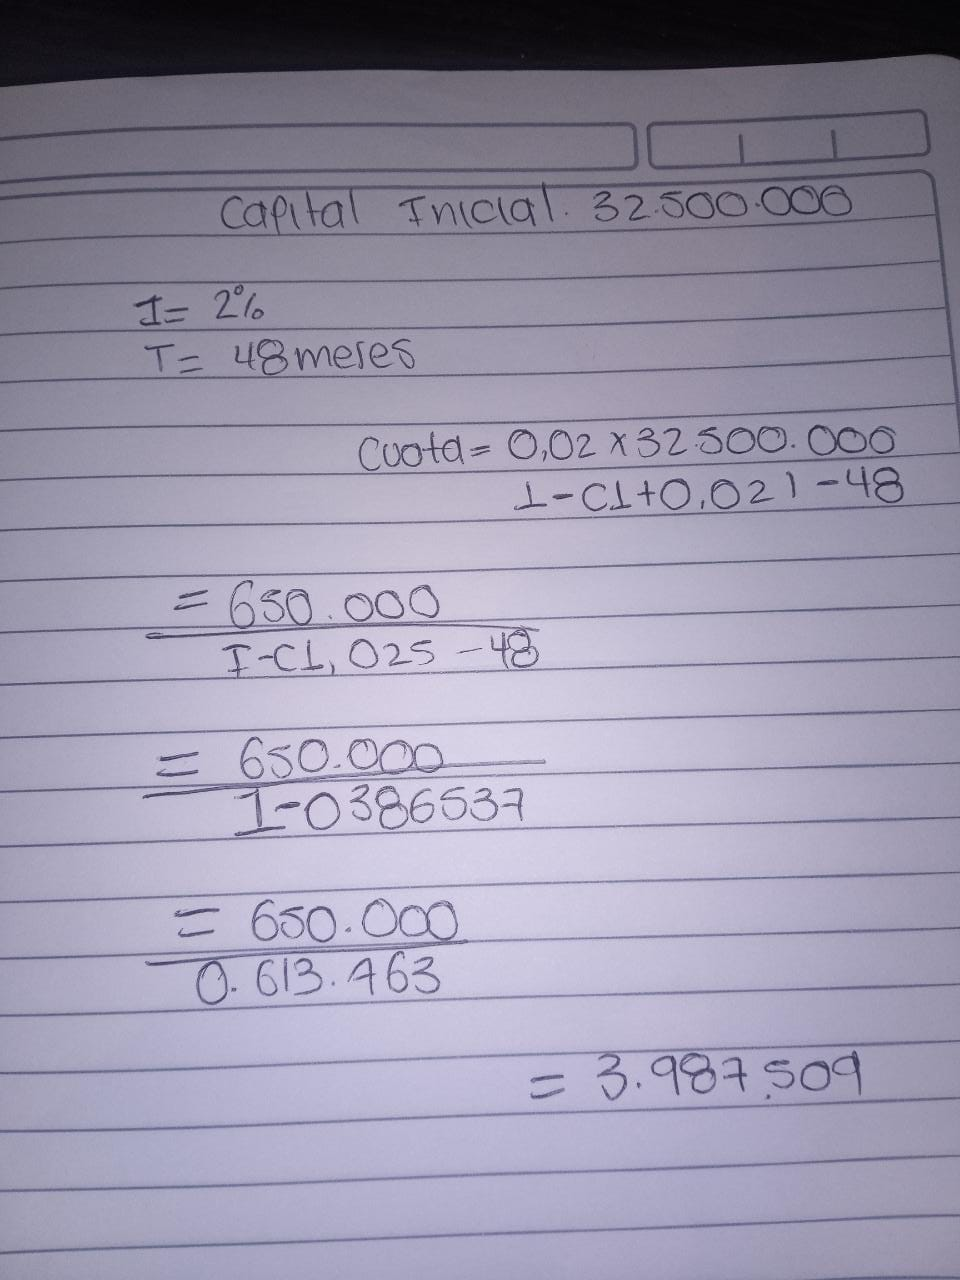 Capital Inicial. 32.500.000
I= 2%
T= 48 meses
Cuota= 0,02 x 32.500.000
1-C1+0,021-48
= 650.000
I-C1,025-48
= 650.000
1-0386537
= 650.000
0.613.463
= 3.987.509